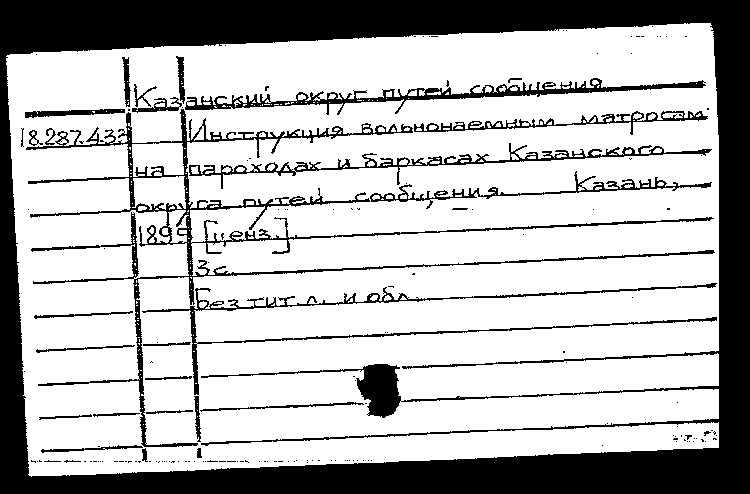 Казанский округ путей сообщения
18.287.433 Инструкция вольнонаемным матросам
на пароходах и баркасах Казанского
округа путей сообщения. Казань,
1895 [ценз.].
3 с.
Без тит. л. и обл.